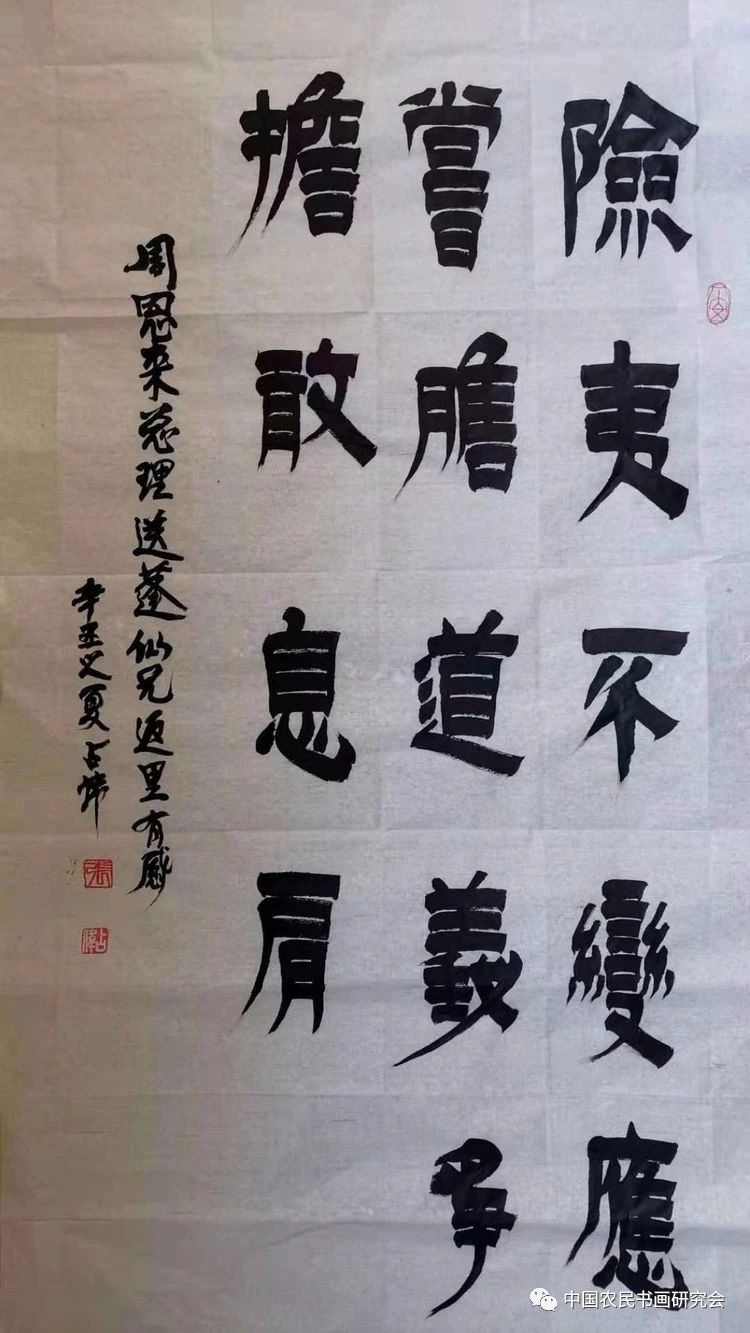 險夷不變應
嘗膽道義爭
擔敢息肩
周恩来总理送蓬仙兄返里有感
辛丑之夏占炜
中国农民书画研究会